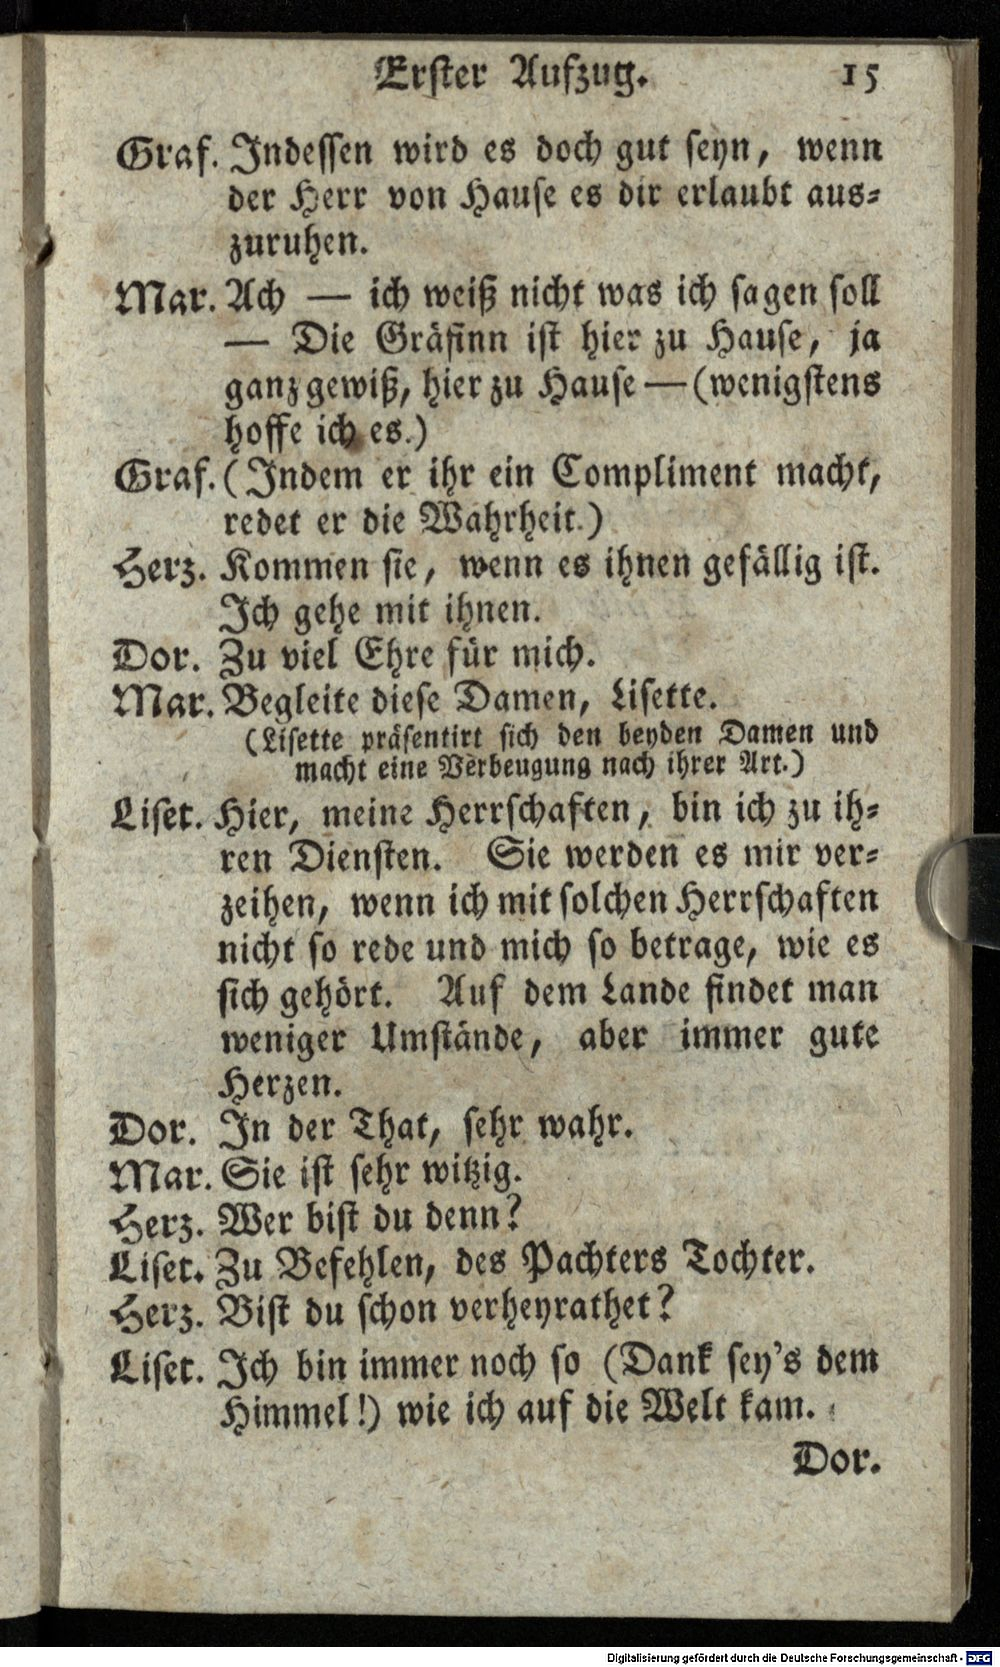 Erster Aufzug. 15
Graf. Indessen wird es doch gut seyn, wenn
der Herr von Hause es dir erlaubt aus-
zuruhen.
Mar. Ach — ich weiß nicht was ich sagen soll
— Die Gräfinn ist hier zu Hause, ja
ganz gewiß, hier zu Hause — (wenigstens
hoffe ich es.)
Graf. (Indem er ihr ein Compliment macht,
redet er die Wahrheit.)
Herz. Kommen sie, wenn es ihnen gefällig ist.
Ich gehe mit ihnen.
Dor. Zu viel Ehre für mich.
Mar. Begleite diese Damen, Lisette.
(Lisette präsentirt sich den beyden Damen und
macht eine Verbeugung nach ihrer Art.)
Liset. Hier, meine Herrschaften, bin ich zu ih-
ren Diensten. Sie werden es mir ver-
zeihen, wenn ich mit solchen Herrschaften
nicht so rede und mich so betrage, wie es
sich gehört. Auf dem Lande findet man
weniger Umstände, aber immer gute
Herzen.
Dor. In der That, sehr wahr.
Mar. Sie ist sehr witzig.
Herz. Wer bist du denn?
Liset. Zu Befehlen, des Pachters Tochter.
Herz. Bist du schon verheyrathet?
Liset. Ich bin immer noch so (Dank sey's dem
Himmel!) wie ich auf die Welt kam.
Dor.
Digitalisierung gefördert durch die Deutsche Forschungsgemeinschaft - DFG